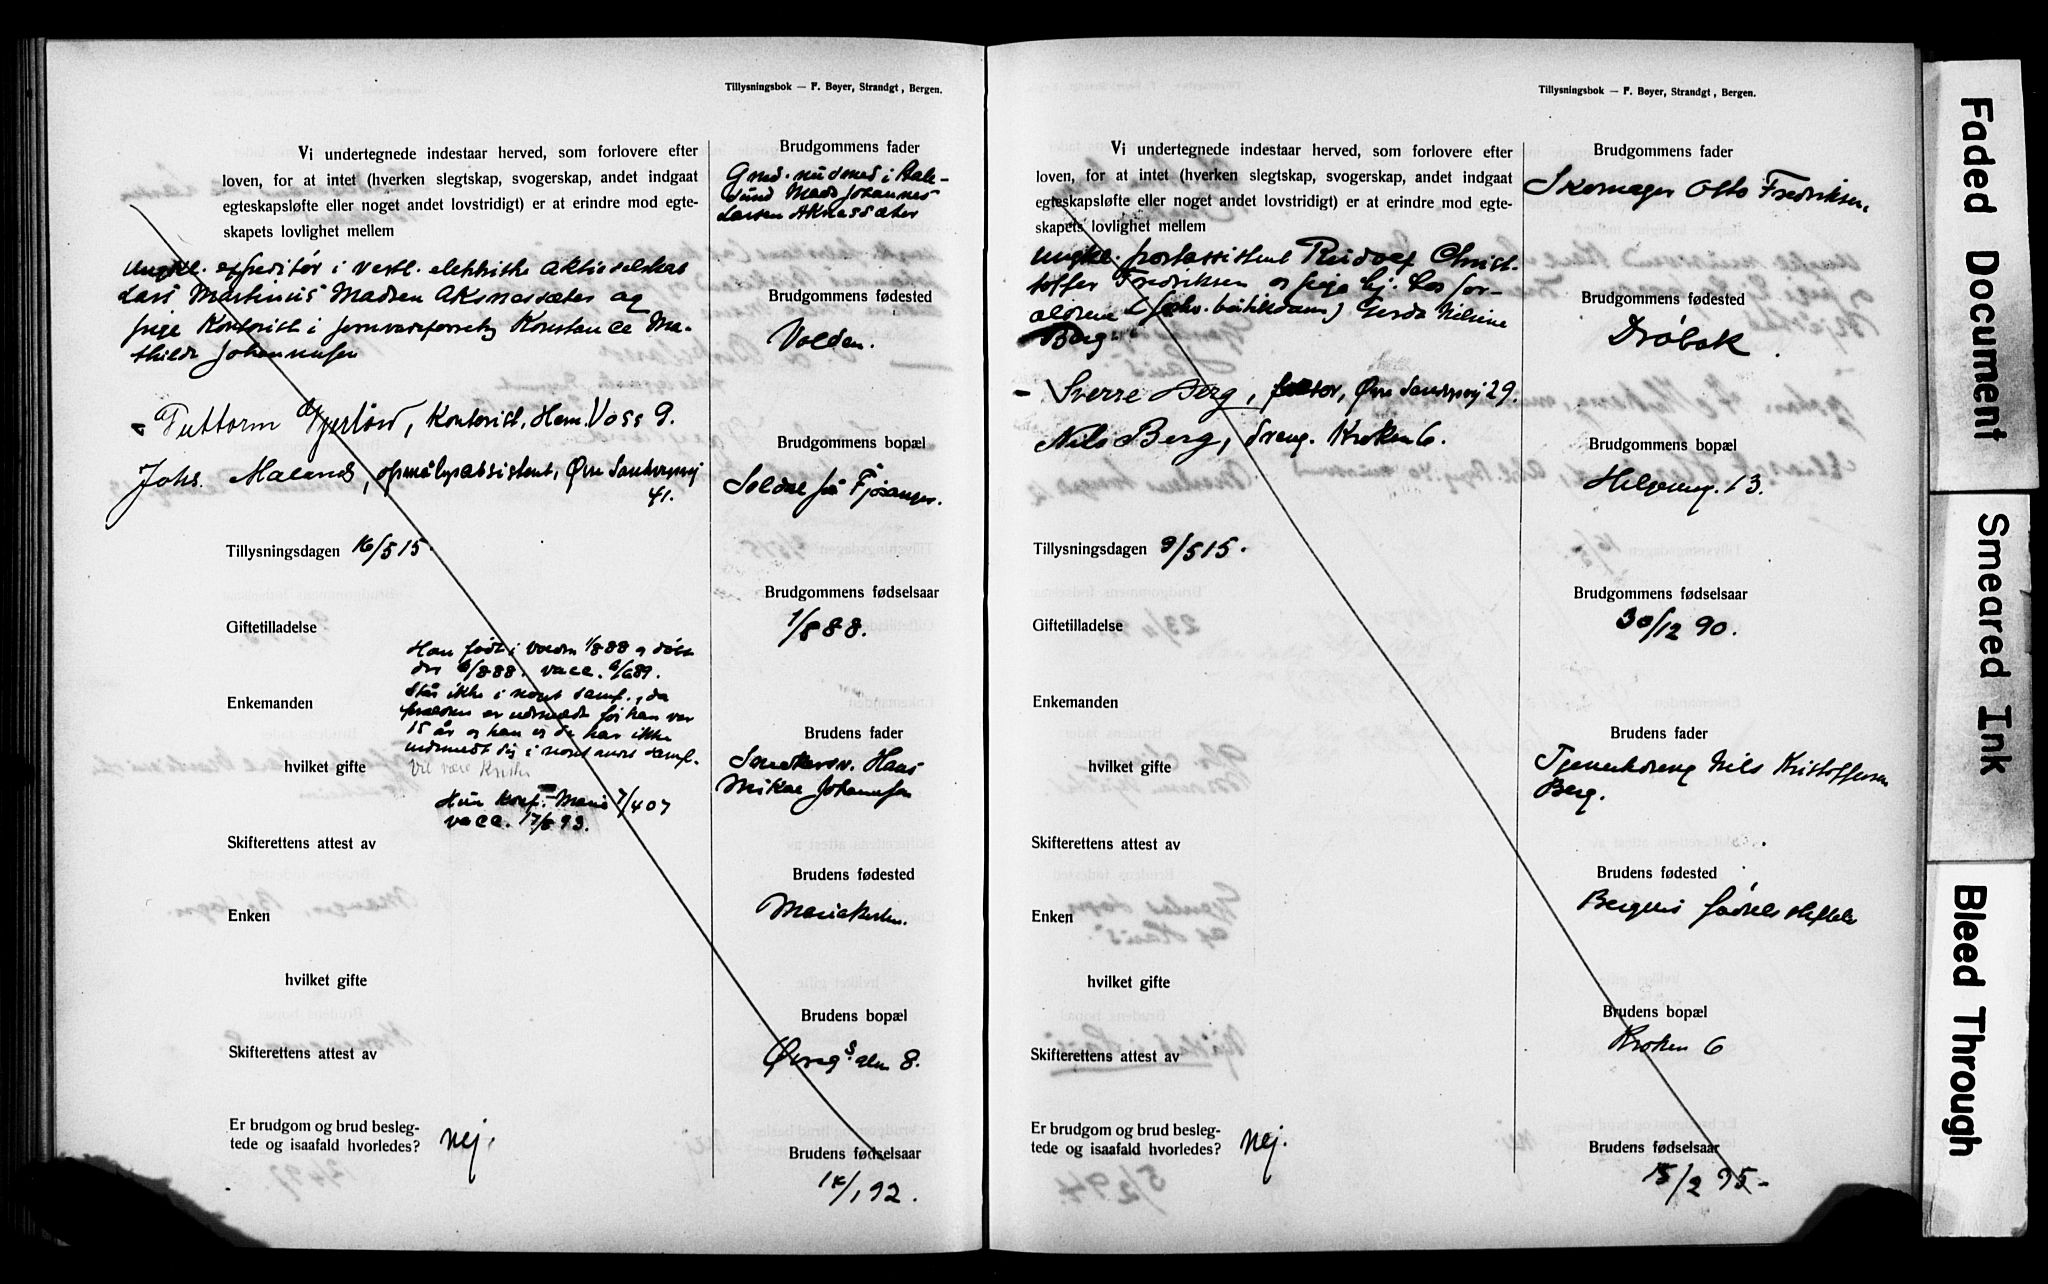 Tillysningsbok — F. Bøyer, Strandgt, Bergen.
Vi undertegnede indestaar herved, som forlovere efter
loven, for at intet (hverken slegtskap, svogerskap, andet indgaat
egteskapsløfte eller noget andet lovstridigt) er at erindre mod egte-
skapets lovlighet mellem
ungkl. expeditør i vestl. elektriske aktieselskap
Lars Martinius Madsen Aknessæter og
pige Kontorist i jernvareforretn Konstance Ma-
thilde Johannesen
Guttorm Gjerløw, Kontorist, Herm. Voss 9.
Johs. Maland, opmålgsassistent, Øvre Sandvigsvej
41.
Tillysningsdagen 16/5 15.
Giftetilladelse
Han født i Volden 1/8 88 og døbt
der 6/8 88. vacc. 9/6 89.
Står ikke i noget samf., da
forældrene er udmeldt før han var
15 år og han er da har ikke
indmeldt sig i noget andet samf.
Vil være Kristen
Enkemanden
hvilket gifte
Hun konf. Marie 7/4 07
vacc. 17/8 93.
Skifterettens attest av
Enken
hvilket gifte
Skifterettens attest av
Er brudgom og brud besleg-
tede og isaafald hvorledes? Nej.
Brudgommens fader
i Aale-
sund Mads Johannes
Larsen Aknessæter
Brudgommens fødested
Volden.
Brudgommens bopæl
Soldal på Fjøsanger.
Brudgommens fødselsaar
1/8 88.
Brudens fader
Snedkersv. Hans
Mikal Johannesen
Brudens fødested
Mariakirken.
Brudens bopæl
Øvregs alm 8.
Brudens fødselsaar
14/1 92.
Tillysningsbok — F. Bøyer, Strandgt, Bergen.
Vi undertegnede indestaar herved, som forlovere efter
loven, for at intet (hverken slegtskap, svogerskap, andet indgaat
egteskapsløfte eller noget andet lovstridigt) er at erindre mod egte-
skapets lovlighet mellem
ungkl. postassistent Rudolf Christ-
toffer Fredriksen og pige hj. hos for-
ældrene (forhv. butikdame) Gerda Nilsine
Berg
Sverre Berg, faktor, Øvre Sandvigsvej 29.
Nils Berg, dreng. Kroken 6.
Tillysningsdagen 9/5 15.
Giftetilladelse
Enkemanden
hvilket gifte
Skifterettens attest av
Enken
hvilket gifte
Skifterettens attest av
Er brudgom og brud besleg-
tede og isaafald hvorledes? Nej.
Brudgommens fader
Skomager Otto Fredriksen.
Brudgommens fødested
Drøbak.
Brudgommens bopæl
Helgeseng. 13.
Brudgommens fødselsaar
30/12 90.
Brudens fader
Tjenerdreng Nils Kristoffersen
Berg.
Brudens fødested
Bergens fødselsstiftelse
Brudens bopæl
Kroken 6
Brudens fødselsaar
15/2 95.
Faded Document
Smeared Ink
Bleed Through